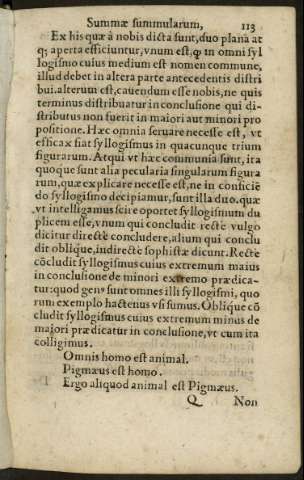 Summæ summularum, 113
Ex his quæ à nobis dicta sunt, duo plana at
q; aperta efficiuntur, vnum est, ꝙ in omni syl
logismo cuius medium est nomen commune,
illud debet in altera parte antecedentis distri
bui. alterum est, cauendum esse nobis, ne quis
terminus distribuatur in conclusione qui di-
stributus non fuerit in maiori aut minori pro
positione. Hæc omnia seruare necesse est, vt
efficax fiat syllogismus in quacunque trium
figurarum. Atqui vt hæc communia sunt, ita
quoque sunt alia pecularia singularum figura
rum, quæ explicare necesse est, ne in conficiē
do syllogismo decipiamur, sunt illa duo. quæ
vt intelligamus scire oportet syllogismum du
plicem esse, vnum qui concludit rectè vulgo
dicitur directè concludere, alium qui conclu
dit obliquè, indirectè sophistæ dicunt. Rectè
cōcludit syllogismus cuius extremum maius
in conclusione de minori extremo prædica-
tur: quod genꝰ sunt omnes illi syllogismi, quo
rum exemplo hactenus vsi sumus. Obliquè cō
cludit syllogismus cuius extremum minus de
maiori prædicatur in conclusione, vt cum ita
colligimus.
Omnis homo est animal.
Pigmæus est homo.
Ergo aliquod animal est Pigmæus.
Q Non